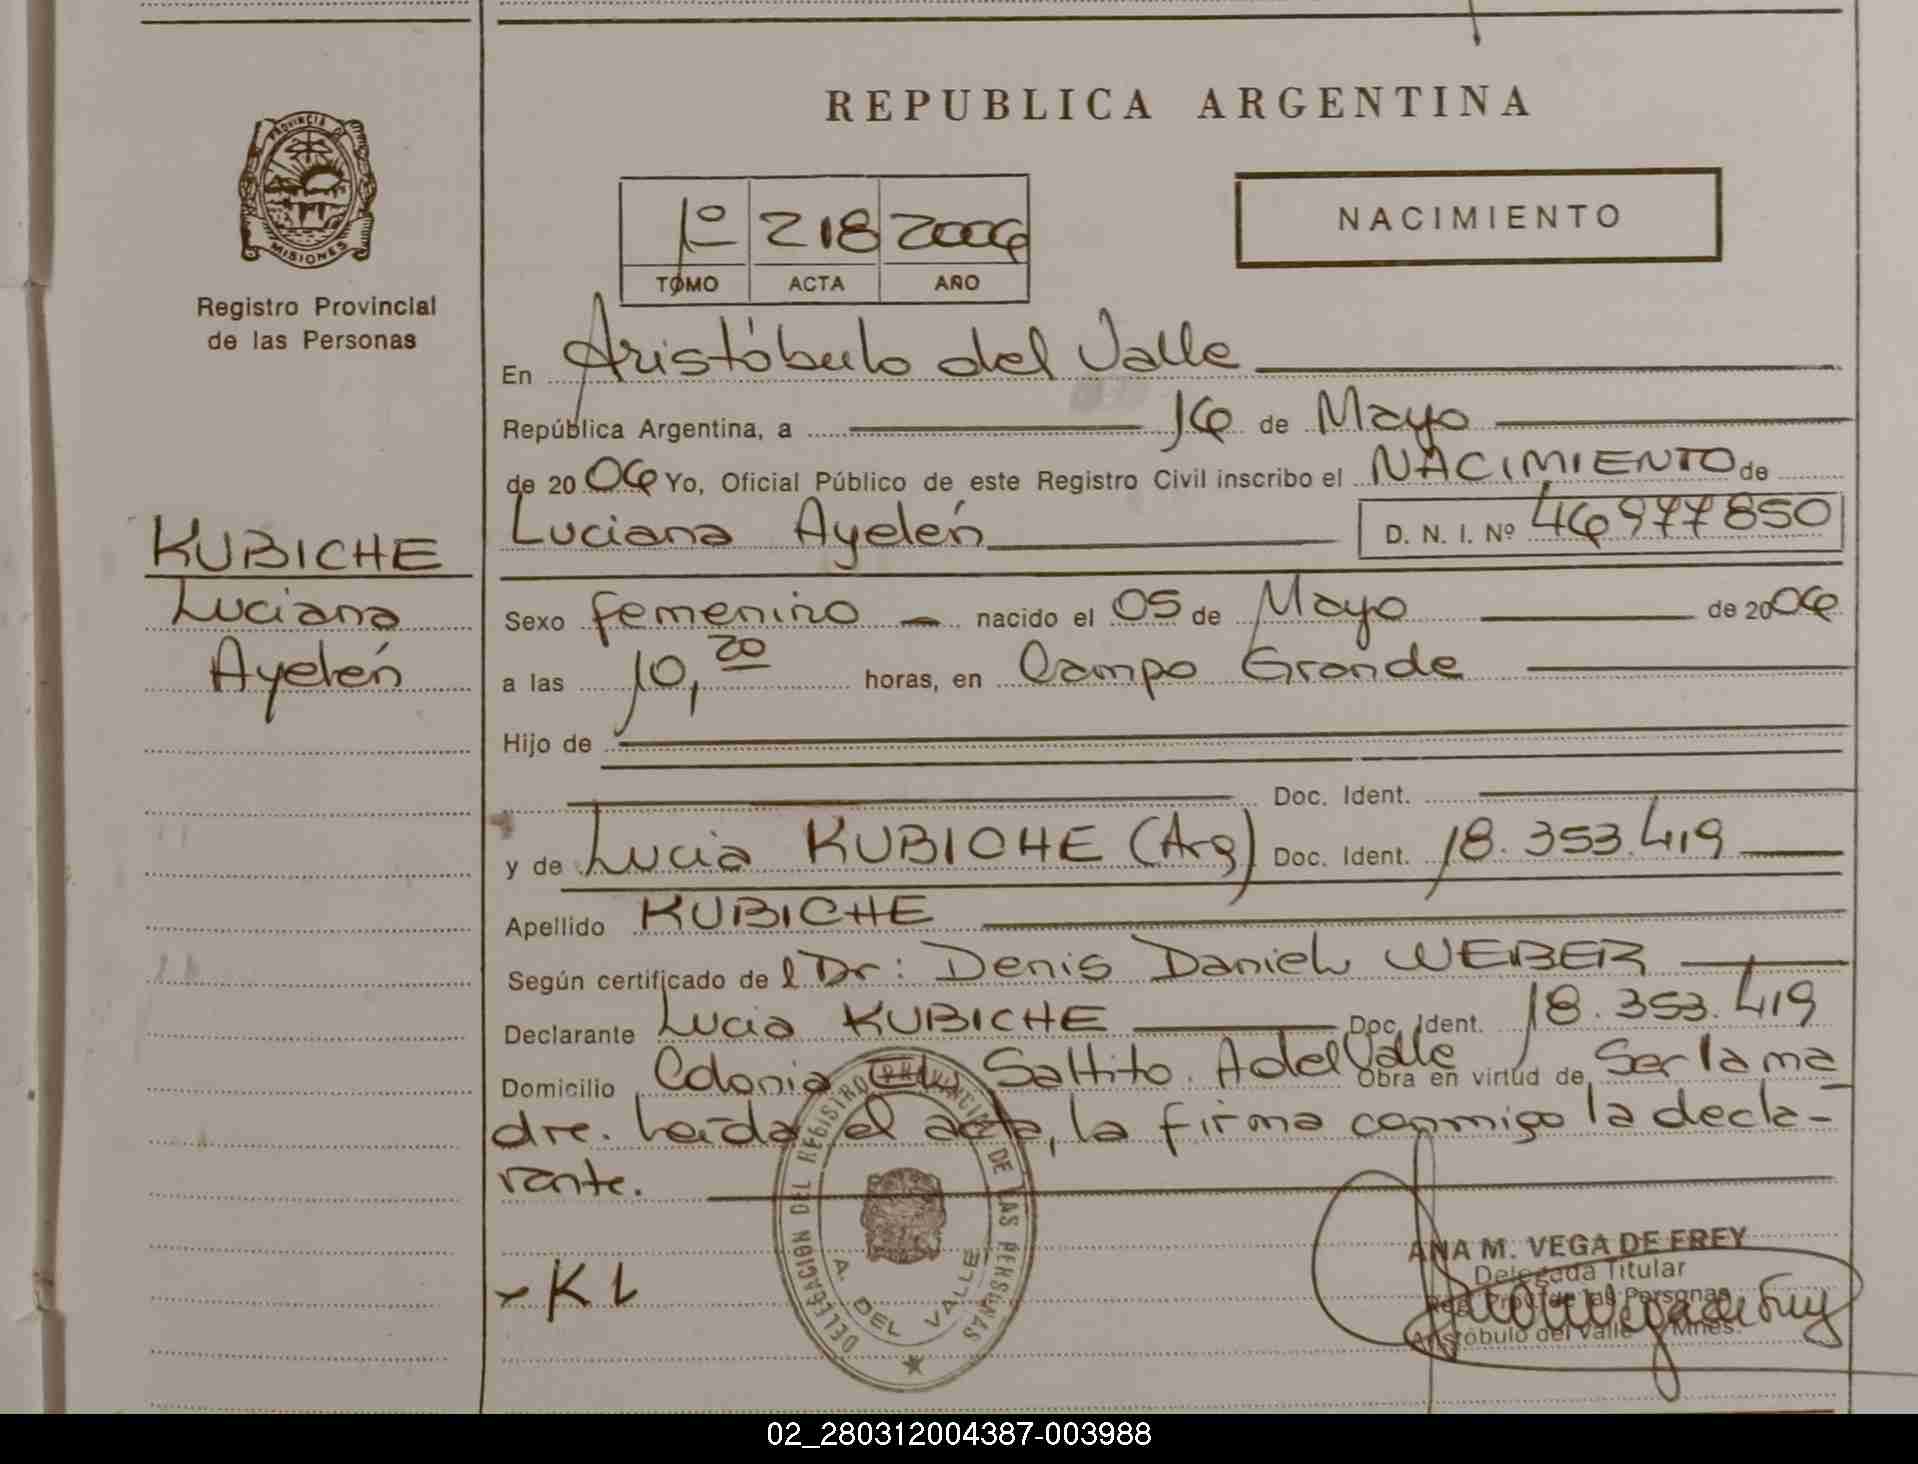 REPUBLICA ARGENTINA
PROVINCIA DE MISIONES
Registro Provincial
de las Personas
1º 218 2006
TOMO ACTA AÑO
NACIMIENTO
En Aristóbulo del Valle
República Argentina, a 16 de Mayo
de 2006 Yo, Oficial Público de este Registro Civil inscribo el NACIMIENTO de
Luciana Ayelén D. N. I. Nº 46977850
KUBICHE
Luciana
Ayelén
Sexo femenino nacido el 05 de Mayo de 2006
a las 10,20 horas, en Campo Grande
Hijo de
Doc. Ident.
y de Lucia KUBICHE (Arg) Doc. Ident. 18.353.419
Apellido KUBICHE
Según certificado de l Dr: Denis Daniel WEBER
Declarante Lucia KUBICHE Doc. Ident. 18.353.419
Domicilio Colonia El Saltito. A del Valle Obra en virtud de Ser la ma
dre. Leída el acta, la firma conmigo la decla-
rante.
DELEGACION DEL REGISTRO PROVINCIAL DE LAS PERSONAS
A. DEL VALLE
K L
ANA M. VEGA DE FREY
Delegada Titular
Reg. Prov. de las Personas
Aristóbulo del Valle Mnes.
02_280312004387-003988